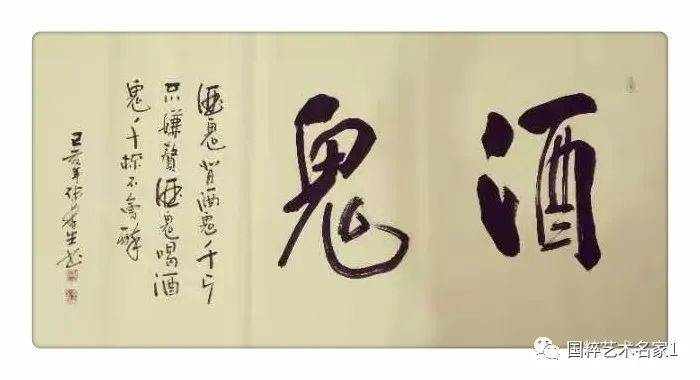 酒鬼
酒鬼背酒鬼千斤
不嫌贅酒鬼喝酒
鬼千杯不會醉
己亥年生书
国粹艺术名家1